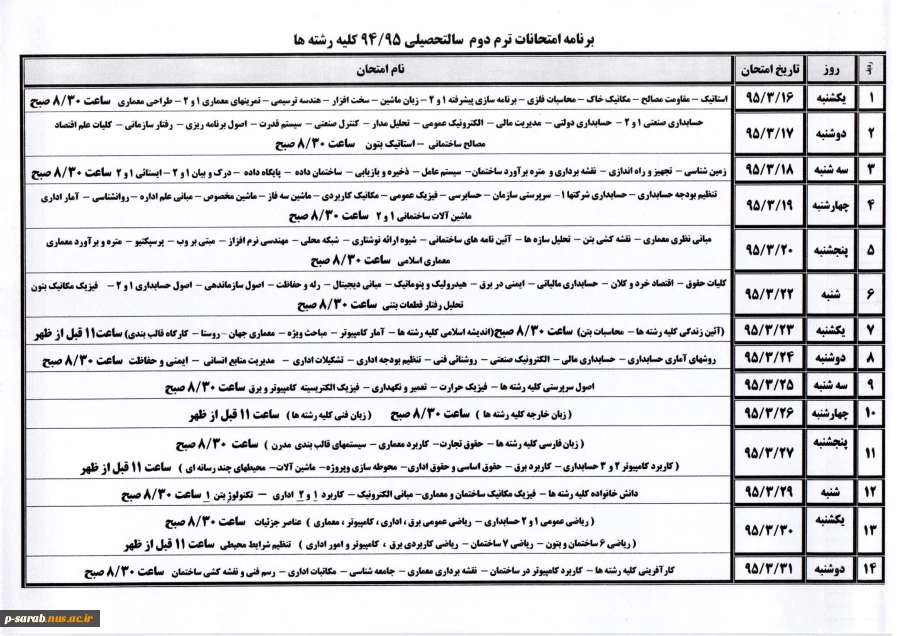 برنامه امتحانات ترم دوم سالتحصیلی ۹۴/۹۵ کلیه رشته ها
ردیف روز تاریخ امتحان نام امتحان
۱ یکشنبه ۹۵/۳/۱۶ استاتیک – مقاومت مصالح – مکانیک خاک – محاسبات فلزی – برنامه سازی پیشرفته ۱ و ۲ – زبان ماشین – سخت افزار – هندسه ترسیمی – تمرینهای معماری ۱ و ۲ – طراحی معماری ساعت ۸/۳۰ صبح
۲ دوشنبه ۹۵/۳/۱۷ حسابداری صنعتی ۱ و ۲ – حسابداری دولتی – مدیریت مالی – الکترونیک عمومی – تحلیل مدار – کنترل صنعتی – سیستم قدرت – اصول برنامه ریزی – رفتار سازمانی – کلیات علم اقتصاد
مصالح ساختمانی – استاتیک بتون ساعت ۸/۳۰ صبح
۳ سه شنبه ۹۵/۳/۱۸ زمین شناسی – تجهیز و راه اندازی – نقشه برداری و متره برآورد ساختمان – سیستم عامل – ذخیره و بازیابی – ساختمان داده – پایگاه داده – درک و بیان ۱ و ۲ – ایستائی ۱ و ۲ ساعت ۸/۳۰ صبح
۴ چهارشنبه ۹۵/۳/۱۹ تنظیم بودجه حسابداری – حسابداری شرکتها ۱ – سرپرستی سازمان – حسابرسی – فیزیک عمومی – مکانیک کاربردی – ماشین سه فاز – ماشین مخصوص – مبانی علم اداره – روانشناسی – آمار اداری
ماشین آلات ساختمانی ۱ و ۲ ساعت ۸/۳۰ صبح
۵ پنجشنبه ۹۵/۳/۲۰ مبانی نظری معماری – نقشه کشی بتن – تحلیل سازه ها – آئین نامه های ساختمانی – شیوه ارائه نوشتاری – شبکه محلی – مهندسی نرم افزار – مبتی بر وب – پرسپکتیو – متره و برآورد معماری
معماری اسلامی ساعت ۸/۳۰ صبح
۶ شنبه ۹۵/۳/۲۲ کلیات حقوق – اقتصاد خرد و کلان – حسابداری مالیاتی – ایمنی در برق – هیدرولیک و پنوماتیک – مبانی دیجیتال – رله و حفاظت – اصول سازماندهی – اصول حسابداری ۱ و ۲ – فیزیک مکانیک بتون
تحلیل رفتار قطعات بتنی ساعت ۸/۳۰ صبح
۷ یکشنبه ۹۵/۳/۲۳ (آئین زندگی کلیه رشته ها – محاسبات بتن) ساعت ۸/۳۰ صبح (اندیشه اسلامی کلیه رشته ها – آمار کامپیوتر – مباحث ویژه – معماری جهان – روستا – کارگاه قالب بندی) ساعت ۱۱ قبل از ظهر
۸ دوشنبه ۹۵/۳/۲۴ روشهای آماری حسابداری – حسابداری مالی – الکترونیک صنعتی – روشنائی فنی – تنظیم بودجه اداری – تشکیلات اداری – مدیریت منابع انسانی – ایمنی و حفاظت ساعت ۸/۳۰ صبح
۹ سه شنبه ۹۵/۳/۲۵ اصول سرپرستی کلیه رشته ها – فیزیک حرارت – تعمیر و نگهداری – فیزیک الکتریسیته کامپیوتر و برق ساعت ۸/۳۰ صبح
۱۰ چهارشنبه ۹۵/۳/۲۶ ( زبان خارجه کلیه رشته ها ) ساعت ۸/۳۰ صبح ( زبان فنی کلیه رشته ها ) ساعت ۱۱ قبل از ظهر
۱۱ پنجشنبه ۹۵/۳/۲۷ ( زبان فارسی کلیه رشته ها – حقوق تجارت – کاربرد معماری – سیستمهای قالب بندی مدرن ) ساعت ۸/۳۰ صبح
( کاربرد کامپیوتر ۲ و ۳ حسابداری – کاربرد برق – حقوق اساسی و حقوق اداری – محوطه سازی وپروژه – ماشین آلات – محیطهای چند رسانه ای ) ساعت ۱۱ قبل از ظهر
۱۲ شنبه ۹۵/۳/۲۹ دانش خانواده کلیه رشته ها – فیزیک مکانیک ساختمان و معماری – مبانی الکترونیک – کاربرد ۱ و ۲ اداری – تکنولوژ بتن ۱ ساعت ۸/۳۰ صبح
۱۳ یکشنبه ۹۵/۳/۳۰ ( ریاضی عمومی ۱ و ۲ حسابداری – ریاضی عمومی برق ، اداری ، کامپیوتر ، معماری ) عناصر جزئیات ساعت ۸/۳۰ صبح
( ریاضی ۶ ساختمان و بتون – ریاضی ۷ ساختمان – ریاضی کاربردی برق ، کامپیوتر و امور اداری ) تنظیم شرایط محیطی ساعت ۱۱ قبل از ظهر
۱۴ دوشنبه ۹۵/۳/۳۱ کارآفرینی کلیه رشته ها – کاربرد کامپیوتر در ساختمان – نقشه برداری معماری – جامعه شناسی – مکاتبات اداری – رسم فنی و نقشه کشی ساختمان ساعت ۸/۳۰ صبح
p-sarab.nus.ac.ir